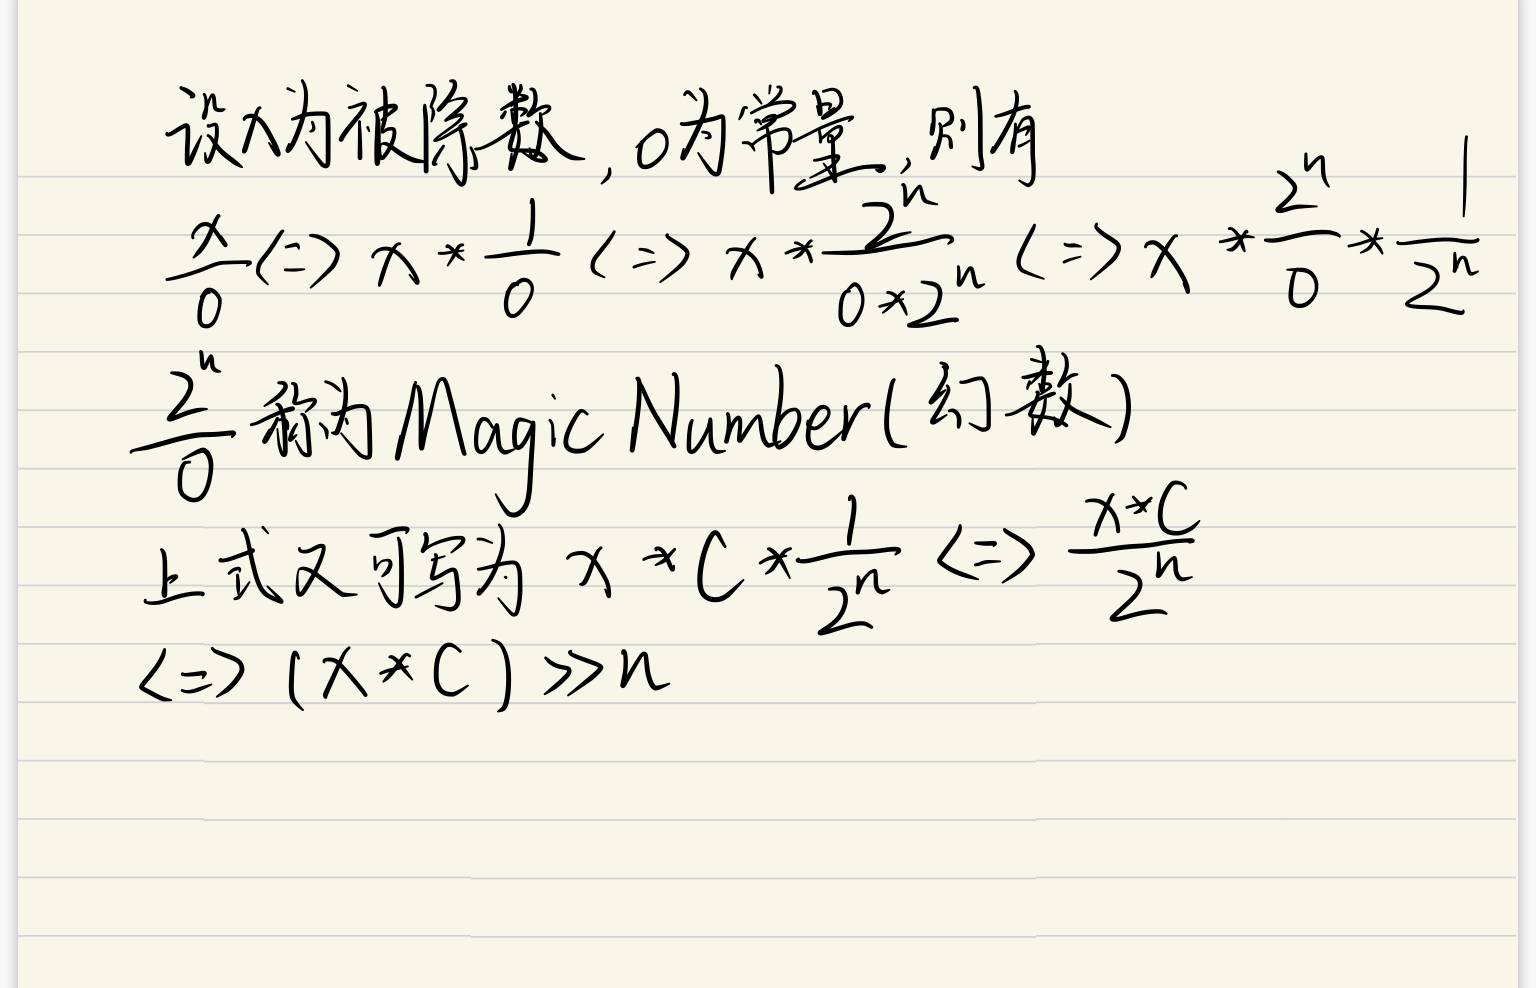 设x为被除数,o为常量,则有
x/o <=> x * 1/o <=> x * 2^n/(o*2^n) <=> x * 2^n/o * 1/2^n
2^n/o 称为Magic Number(幻数)
上式又可写为 x * C * 1/2^n <=> x*C/2^n
<=> (x * C) >> n